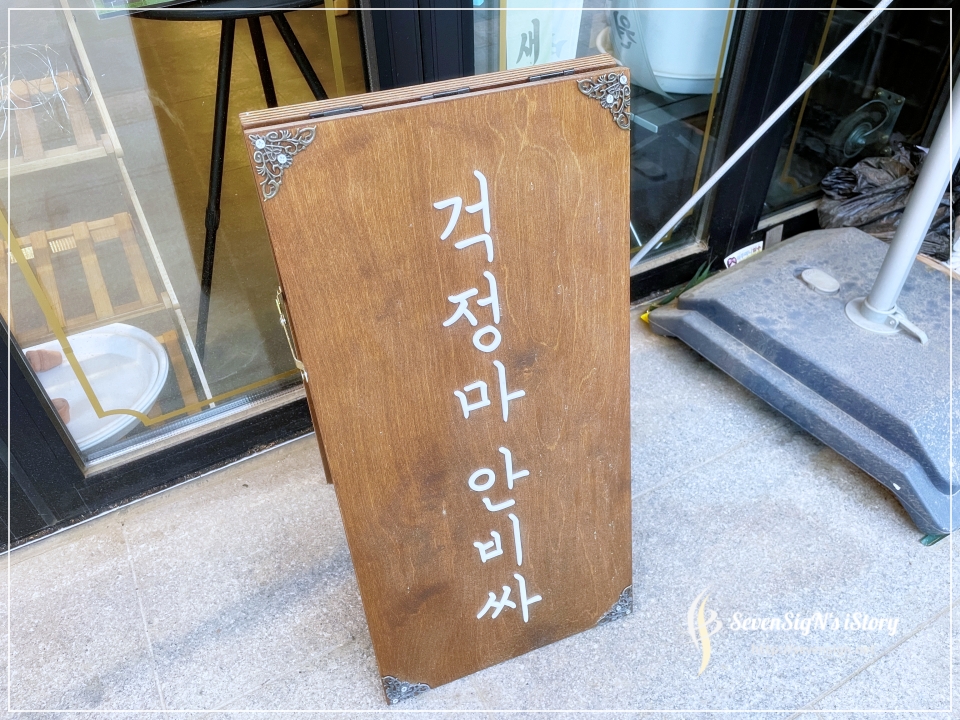 걱정마 안비싸
새
SevenSigN's iStory